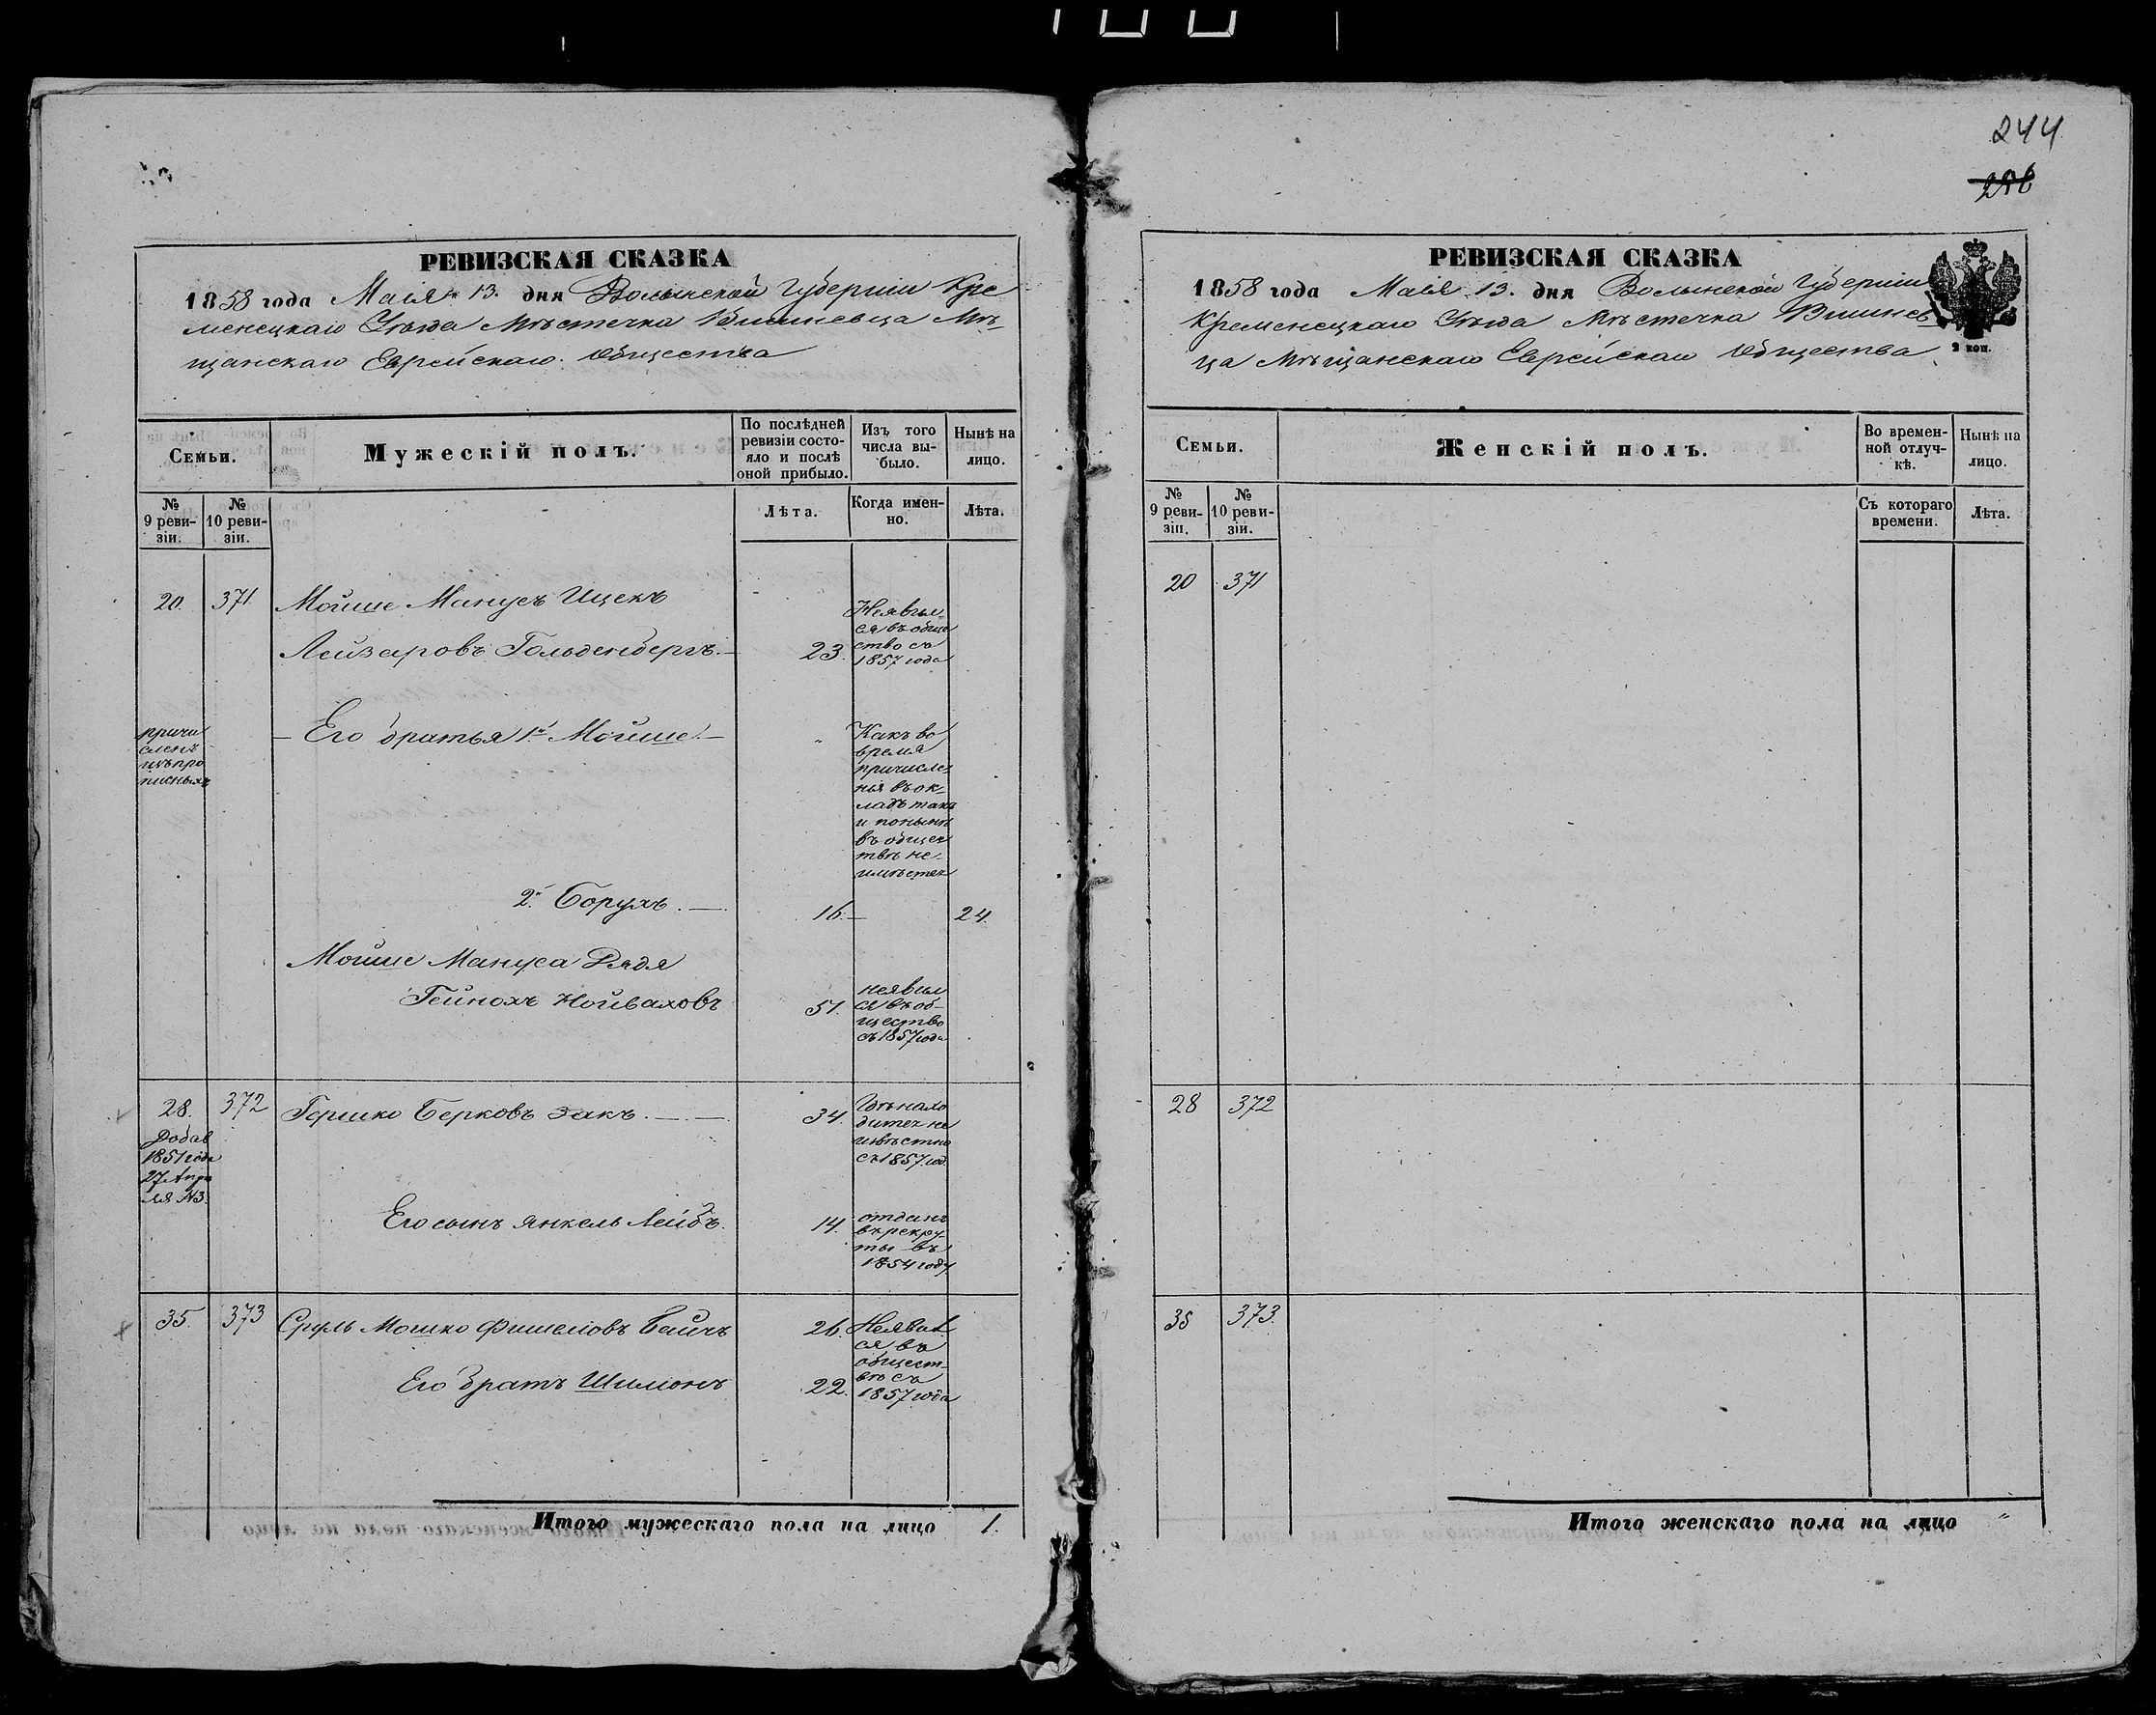 РЕВИЗСКАЯ СКАЗКА
1858 года Маія 13. дня Волынской Губерніи Кре
менецкаго Уѣзда Мѣстечка Вишневца Мѣ-
щанскаго Еврейскаго Общества
Семьи.
Мужескій полъ.
По послѣдней ревизіи состояло и послѣ оной прибыло.
Изъ того числа выбыло.
Нынѣ на лицо.
№ 9 ревизіи.
№ 10 ревизіи.
Лѣта.
Когда именно.
Лѣта.
20. 371. Мойше Манусъ Ицекъ
Лейзеровъ Гольденбергъ. 23.
Неявил
ся въ общe
ство съ
1857 года
причи
сленъ
изъ про
писныхъ
Его братья 1й Мойше
Какъ во
время
причисле
нія въ ок-
ладъ такъ
и понынѣ
въ общес
твѣ не
имѣется
2й Борухъ. 16. 24.
Мойше Мануса Дядя
Гейнохъ Нойваховъ 51.
неявил
ся въ об-
щество
съ 1857 года
28. 372 Гершко Берковъ Закъ. 34.
Добав
1851 года
27 Апрѣ
ля №3.
Гдѣ нахо
дится не
извѣстно
съ 1857 год.
Его сынъ Янкель Лейбъ. 14.
отданъ
въ рекру-
ты въ
1854 году
35. 373 Сруль Мошко Фишелювъ 26.
Его братъ Шимонъ 22.
Неявил
ся въ
общест-
во съ
1857 года
Итого мужескаго пола на лицо 1.
244
РЕВИЗСКАЯ СКАЗКА
1858 года Маія 13. дня Волынской Губерніи
Кременецкаго Уѣзда Мѣстечка Вишнев
ца Мѣщанскаго Еврейскаго Общества
2 коп.
Семьи.
Женскій полъ.
Во временной отлучкѣ.
Нынѣ на лицо.
№ 9 ревизіи.
№ 10 ревизіи.
Съ котораго времени.
Лѣта.
20 371
28 372
35 373.
Итого женскаго пола на лицо "